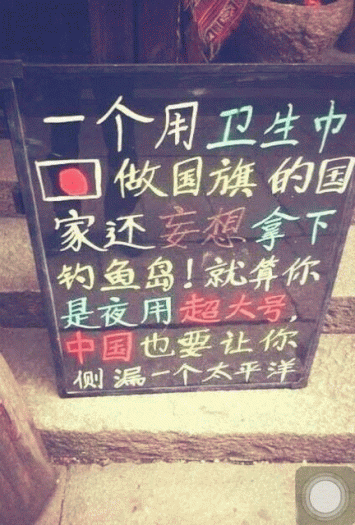 一个用卫生巾
做国旗的国
家还妄想拿下
钓鱼岛！就算你
是夜用超大号，
中国也要让你
侧漏一个太平洋